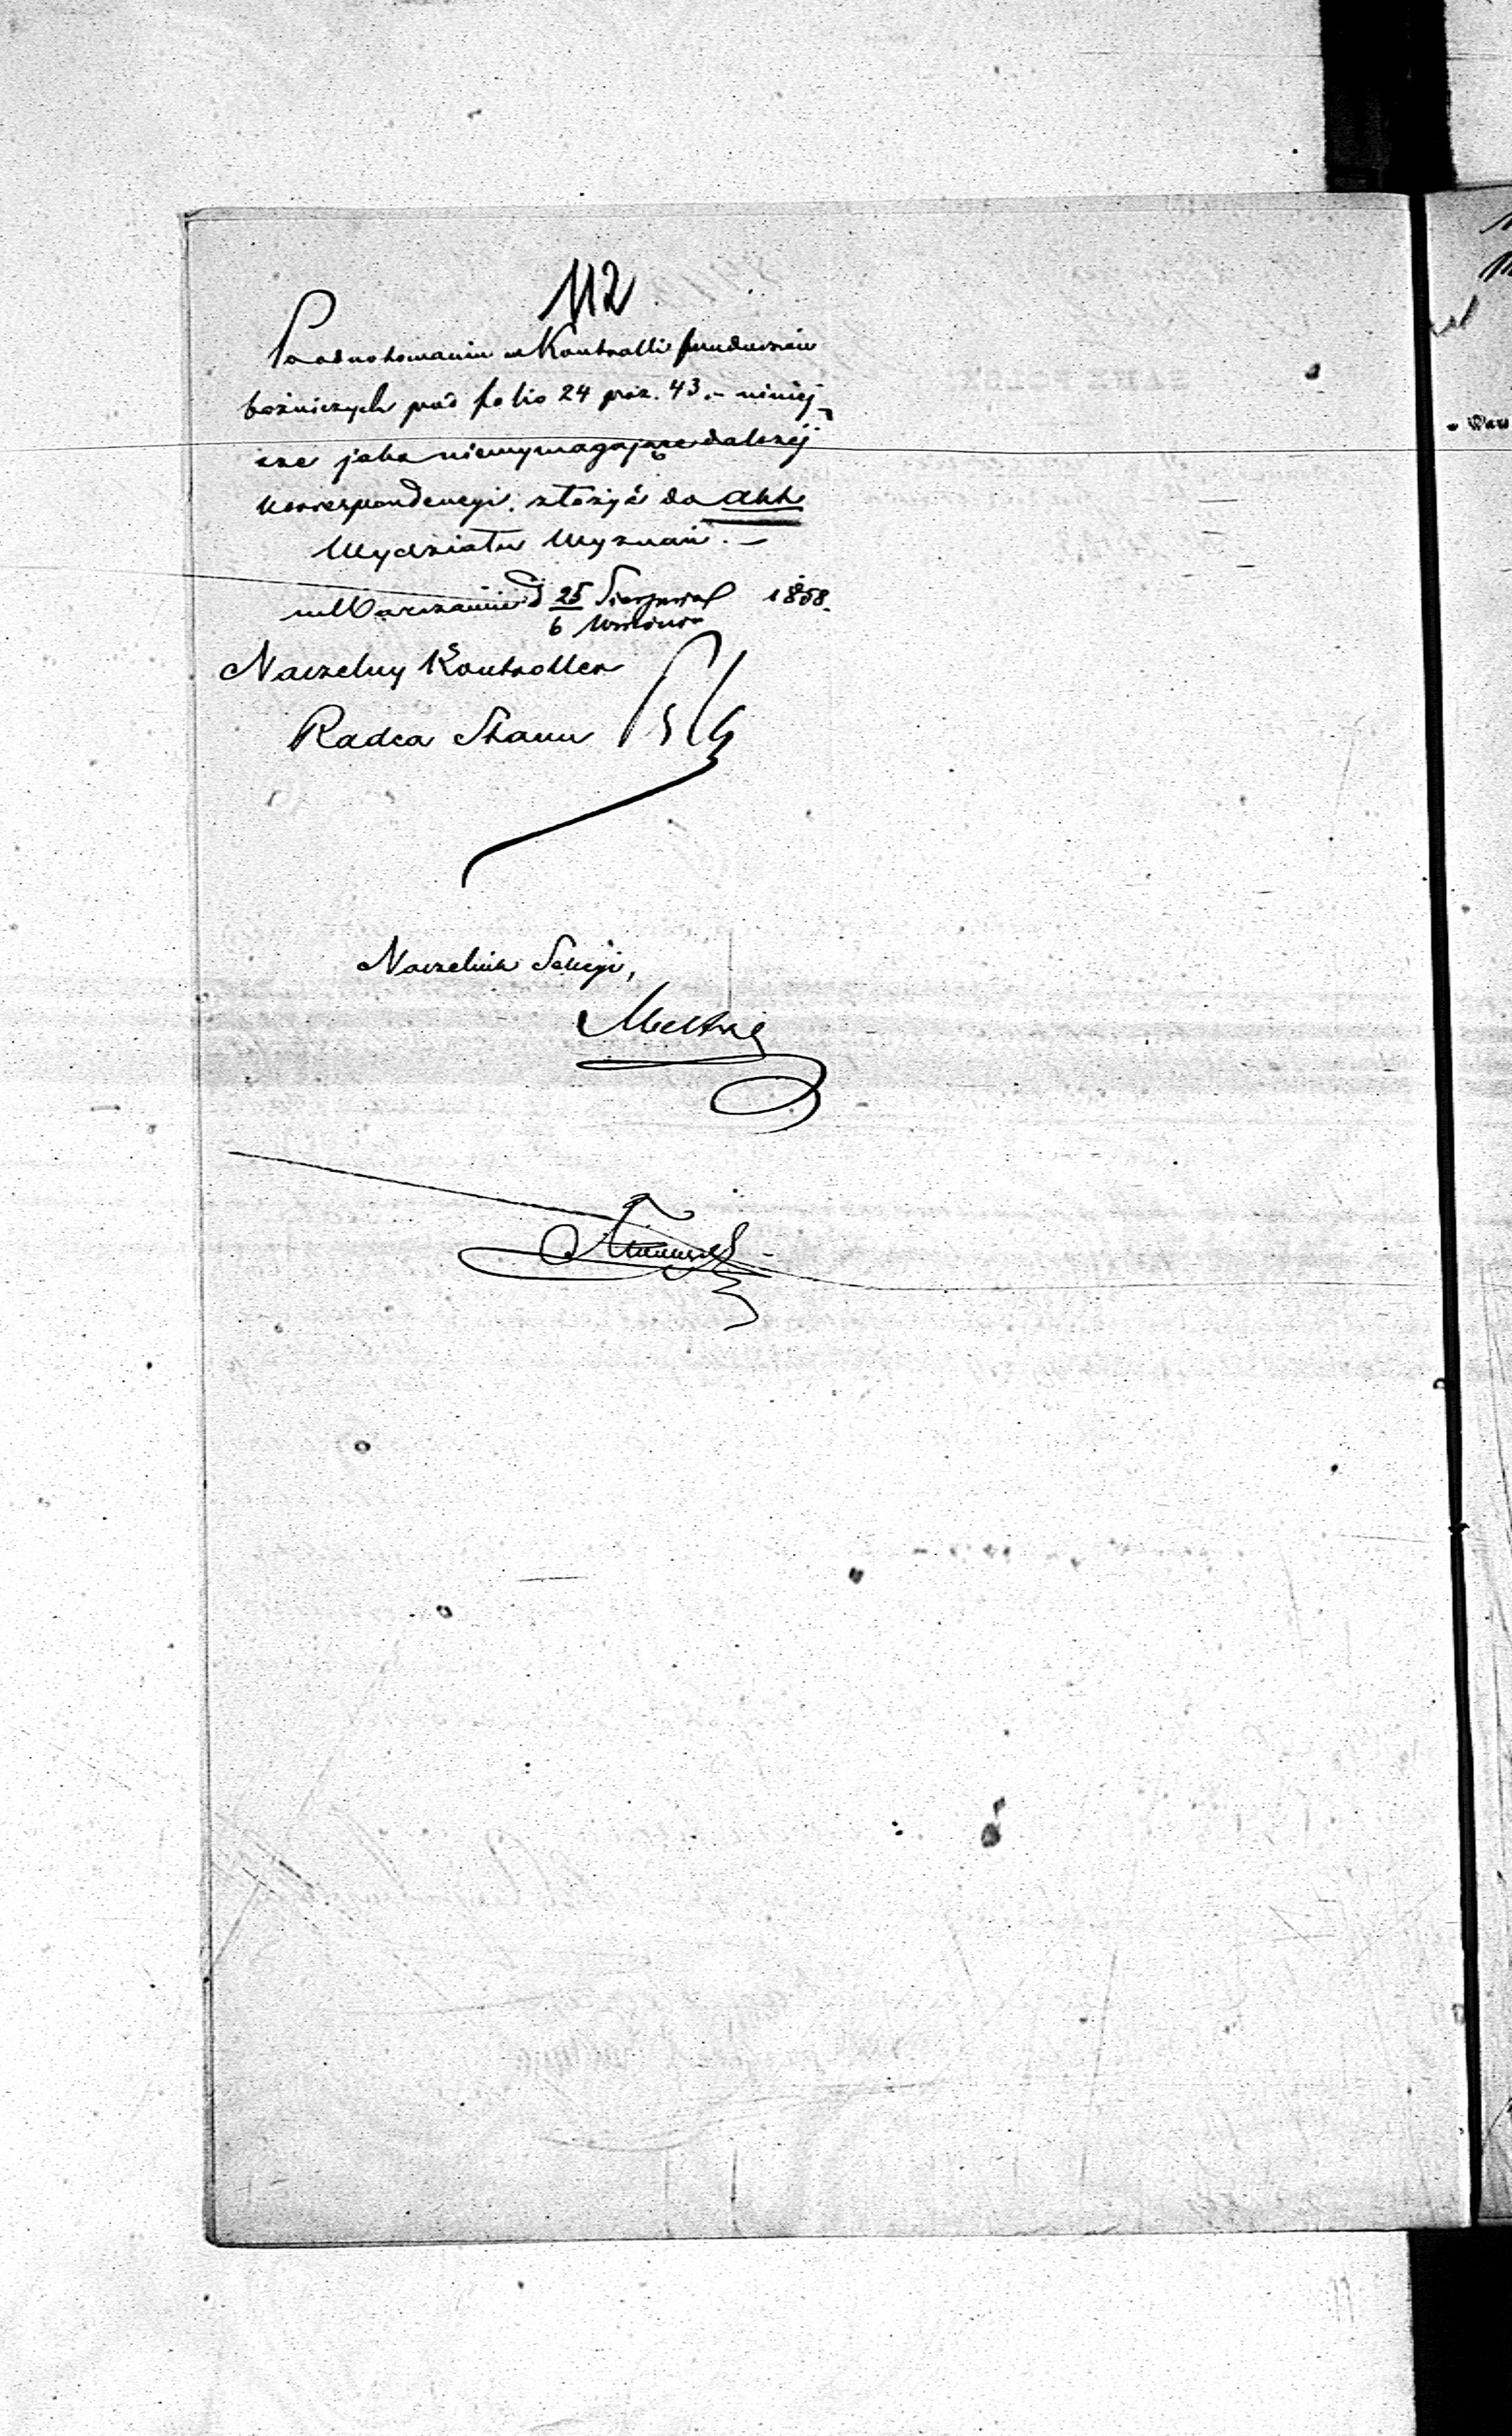 112
Po odnotowaniu w Kontrolli funduszów
bożniczych pod folio 24 poz. 43. – niniej-
sze jako niewymagające dalszéj
korrespondencyi, złożyć do akt
Wydziału Wyznań. –
w Warszawie d 25 Sierpnia 1858.
6 Września
Naczelny Kontroller
Radca Stanu
Naczelnik Sekcyi,